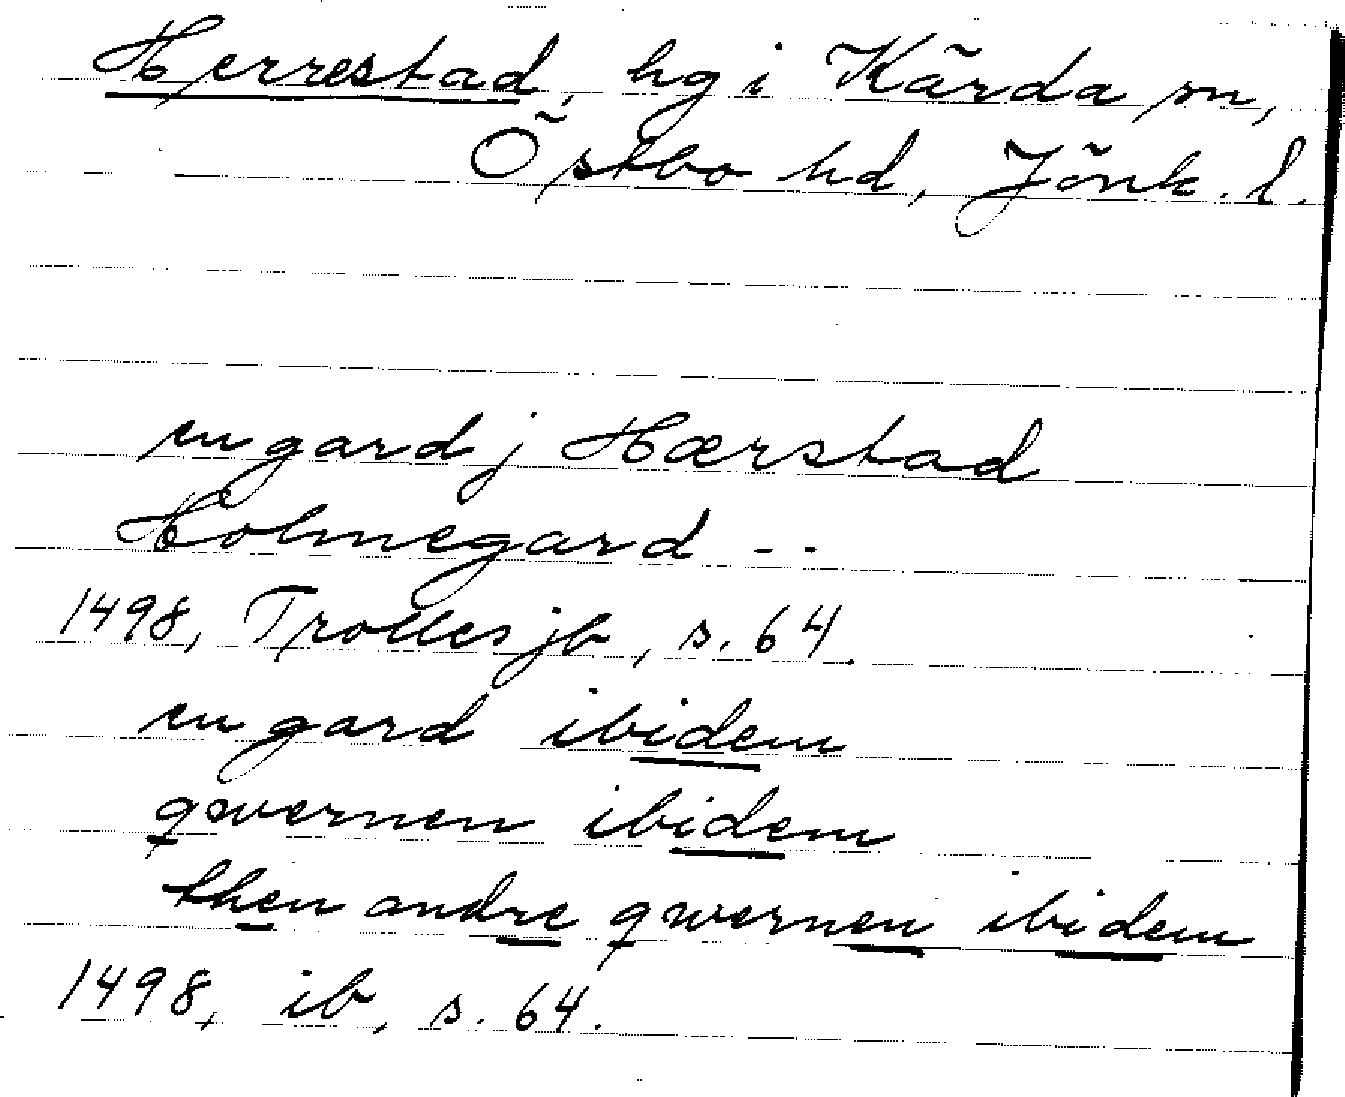 Herrestad, hg i Kärda sn,
Östbo hd, Jönk. l.
en gard j Hærstad
Holmegard --
1498, Trolles jb, s. 64.
en gard ibidem
qwernen ibidem
then andre qwernen ibidem
1498, ib, s. 64.